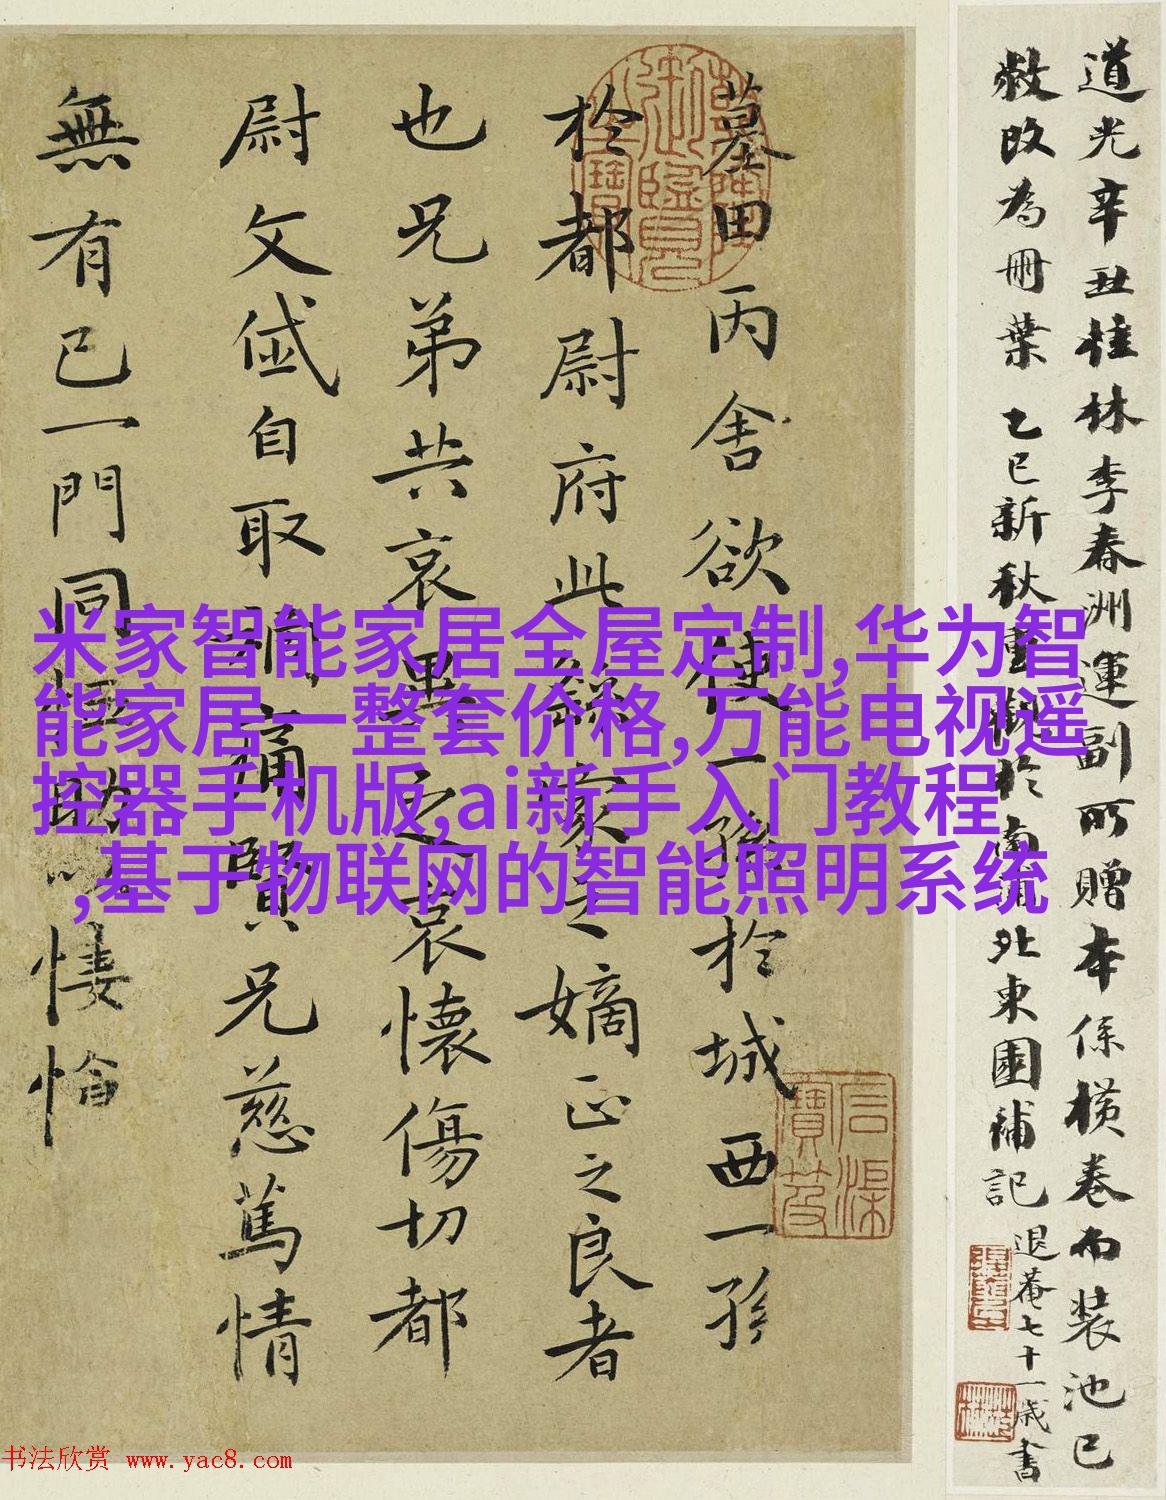 道光辛丑桂林李春洲運副所贈本係橫卷而裝池已
敝改為冊葉乙巳新秋重裝於南浦北東園補記
退菴七十一歲書
墓田丙舍欲使一孫於城西一孫
於都尉府此繇家之嫡正之良者
也兄弟共哀異之哀懷傷切都
尉文岱自取禍痛賢兄慈篤情
無有已一門同恤助悽愴
米家智能家居全屋定制,华为智
能家居一整套价格,万能电视遥
控器手机版,ai新手入门教程
,基于物联网的智能照明系统
书法欣赏 www.yac8.com